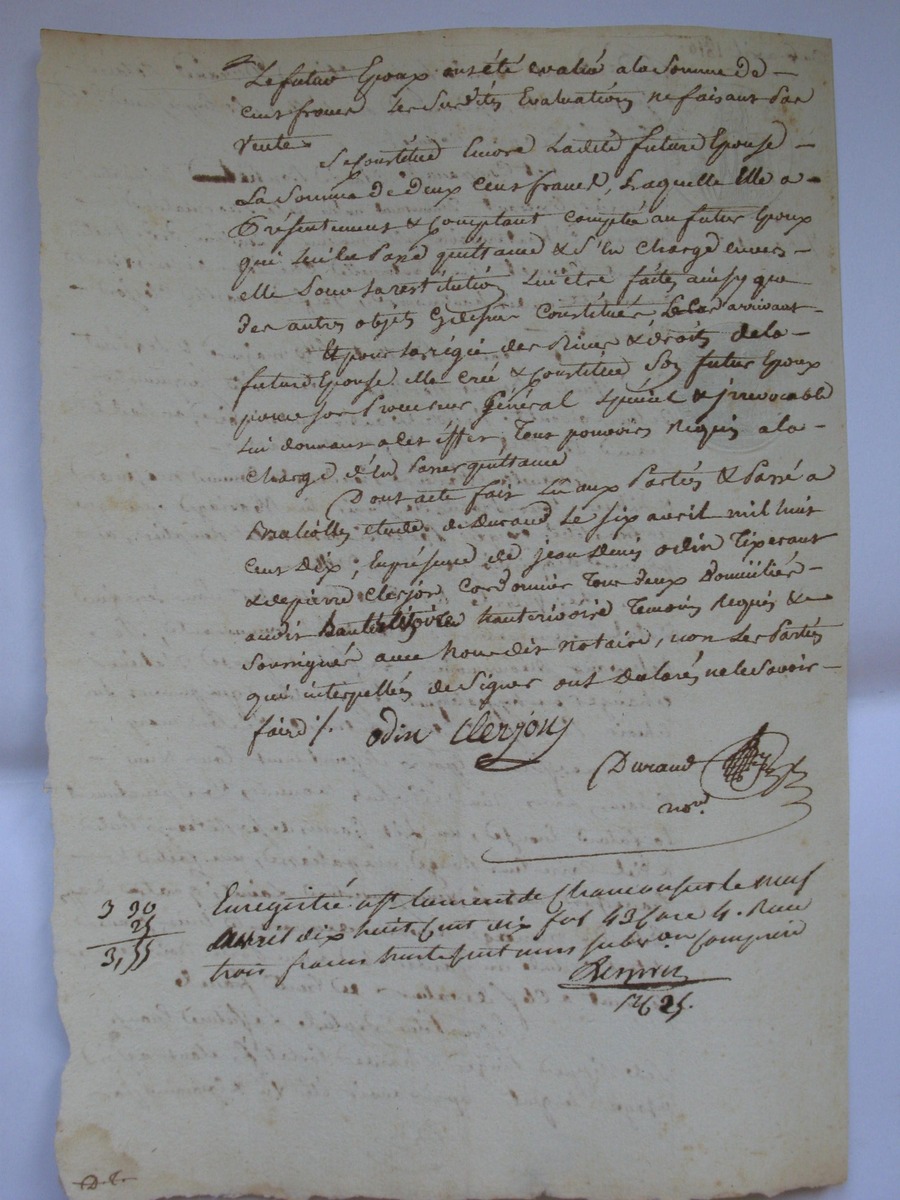 Le futur Epoux ont été évalué a la Somme de
cent francs les Susdites Evaluations ne faisant pas
vente
Se Constitue Encore Ladite future Epouse
La Somme de deux cent francs, Laquelle Elle a
Présentement & Comptant comptée au futur Epoux
qui lui en Passe quittance & S'en charge envers
elle Sous la restitution lui être faite ainsy que
des autres objets Cydessus Constitués le Cas arrivant
Et pour la régie des Biens & droits de la
future Epouse elle crée & Constitue Son futur Epoux
pour son Procureur Général Spécial & jrrevocable
lui donnant a cet effet Tous pouvoirs Requis a la
charge d'en Passer quittance
Dont acte fait Lu aux Parties & Passé a
étude de Durand Le six avril mil huit
cent dix ; En présence de jean denis odin Tixerant
& de pierre Clerjon Cordonnier Tous deux Domiciliés
audit hauterivoire Temoins Requis &
Soussignés avec Nous dit notaire, non Les Parties
qui interpellées de Signer ont déclarés ne le Savoir
faire /.
odin Clerjon
Durand
nore.
3 30
25
3,55
Enregistré a St Laurent de Chamousset le neuf
avril dix huit Cent dix fol 43 Case 4. Reçu
trois francs subvon Comprise
25.
D.L.